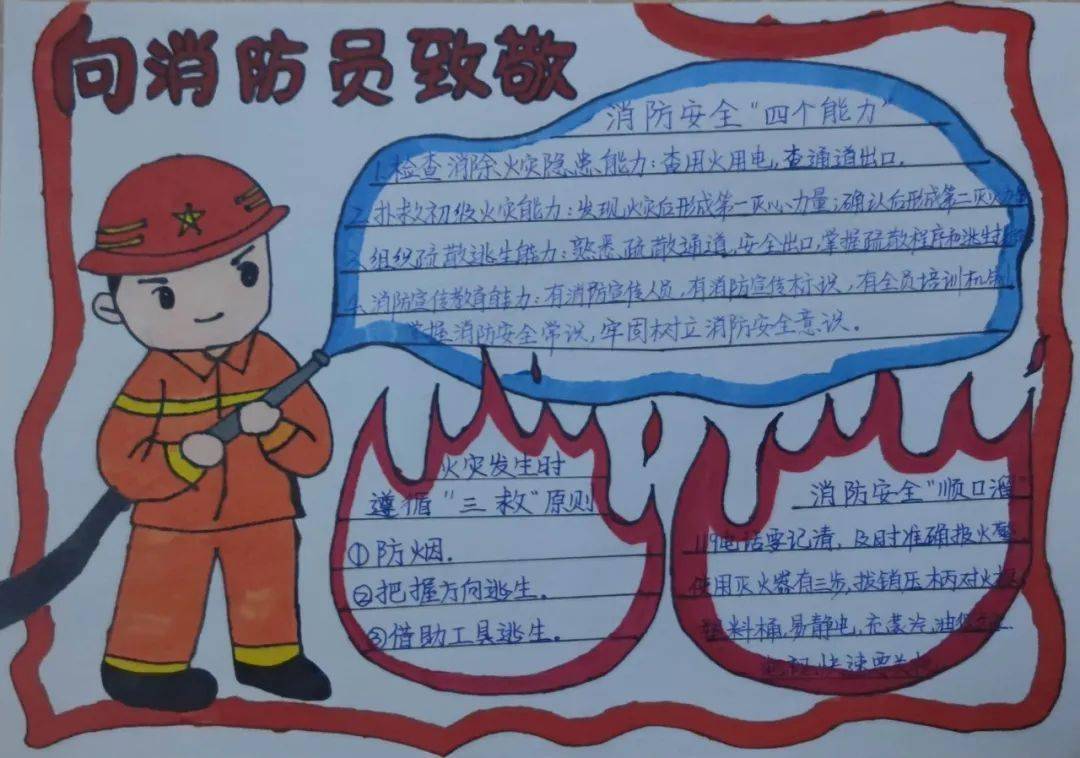 向消防员致敬
消防安全"四个能力"
1.检查消除火灾隐患能力:查用火用电,查通道出口.
2.扑救初级火灾能力:发现火灾后形成第一灭火力量;确认后形成第二灭火力量
3.组织疏散逃生能力:熟悉疏散通道,安全出口,掌握疏散程序和逃生
4.消防宣传教育能力:有消防宣传人员,有消防宣传标识,有全员培训机制
掌握消防安全常识,牢固树立消防安全意识。
火灾发生时
遵循"三救"原则
①防烟.
②把握方向逃生.
③借助工具逃生.
消防安全"顺口溜"
119电话要记清,及时准确报火警
使用灭火器有三步,拔销压柄对火
塑料桶,易静电,充蒸汽,油
快速要